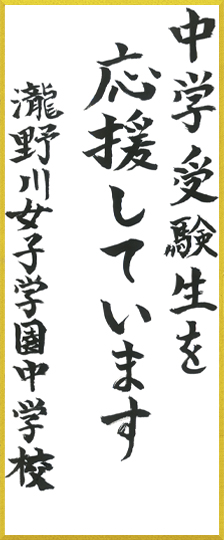 中学受験生を
応援しています
瀧野川女子学園中学校